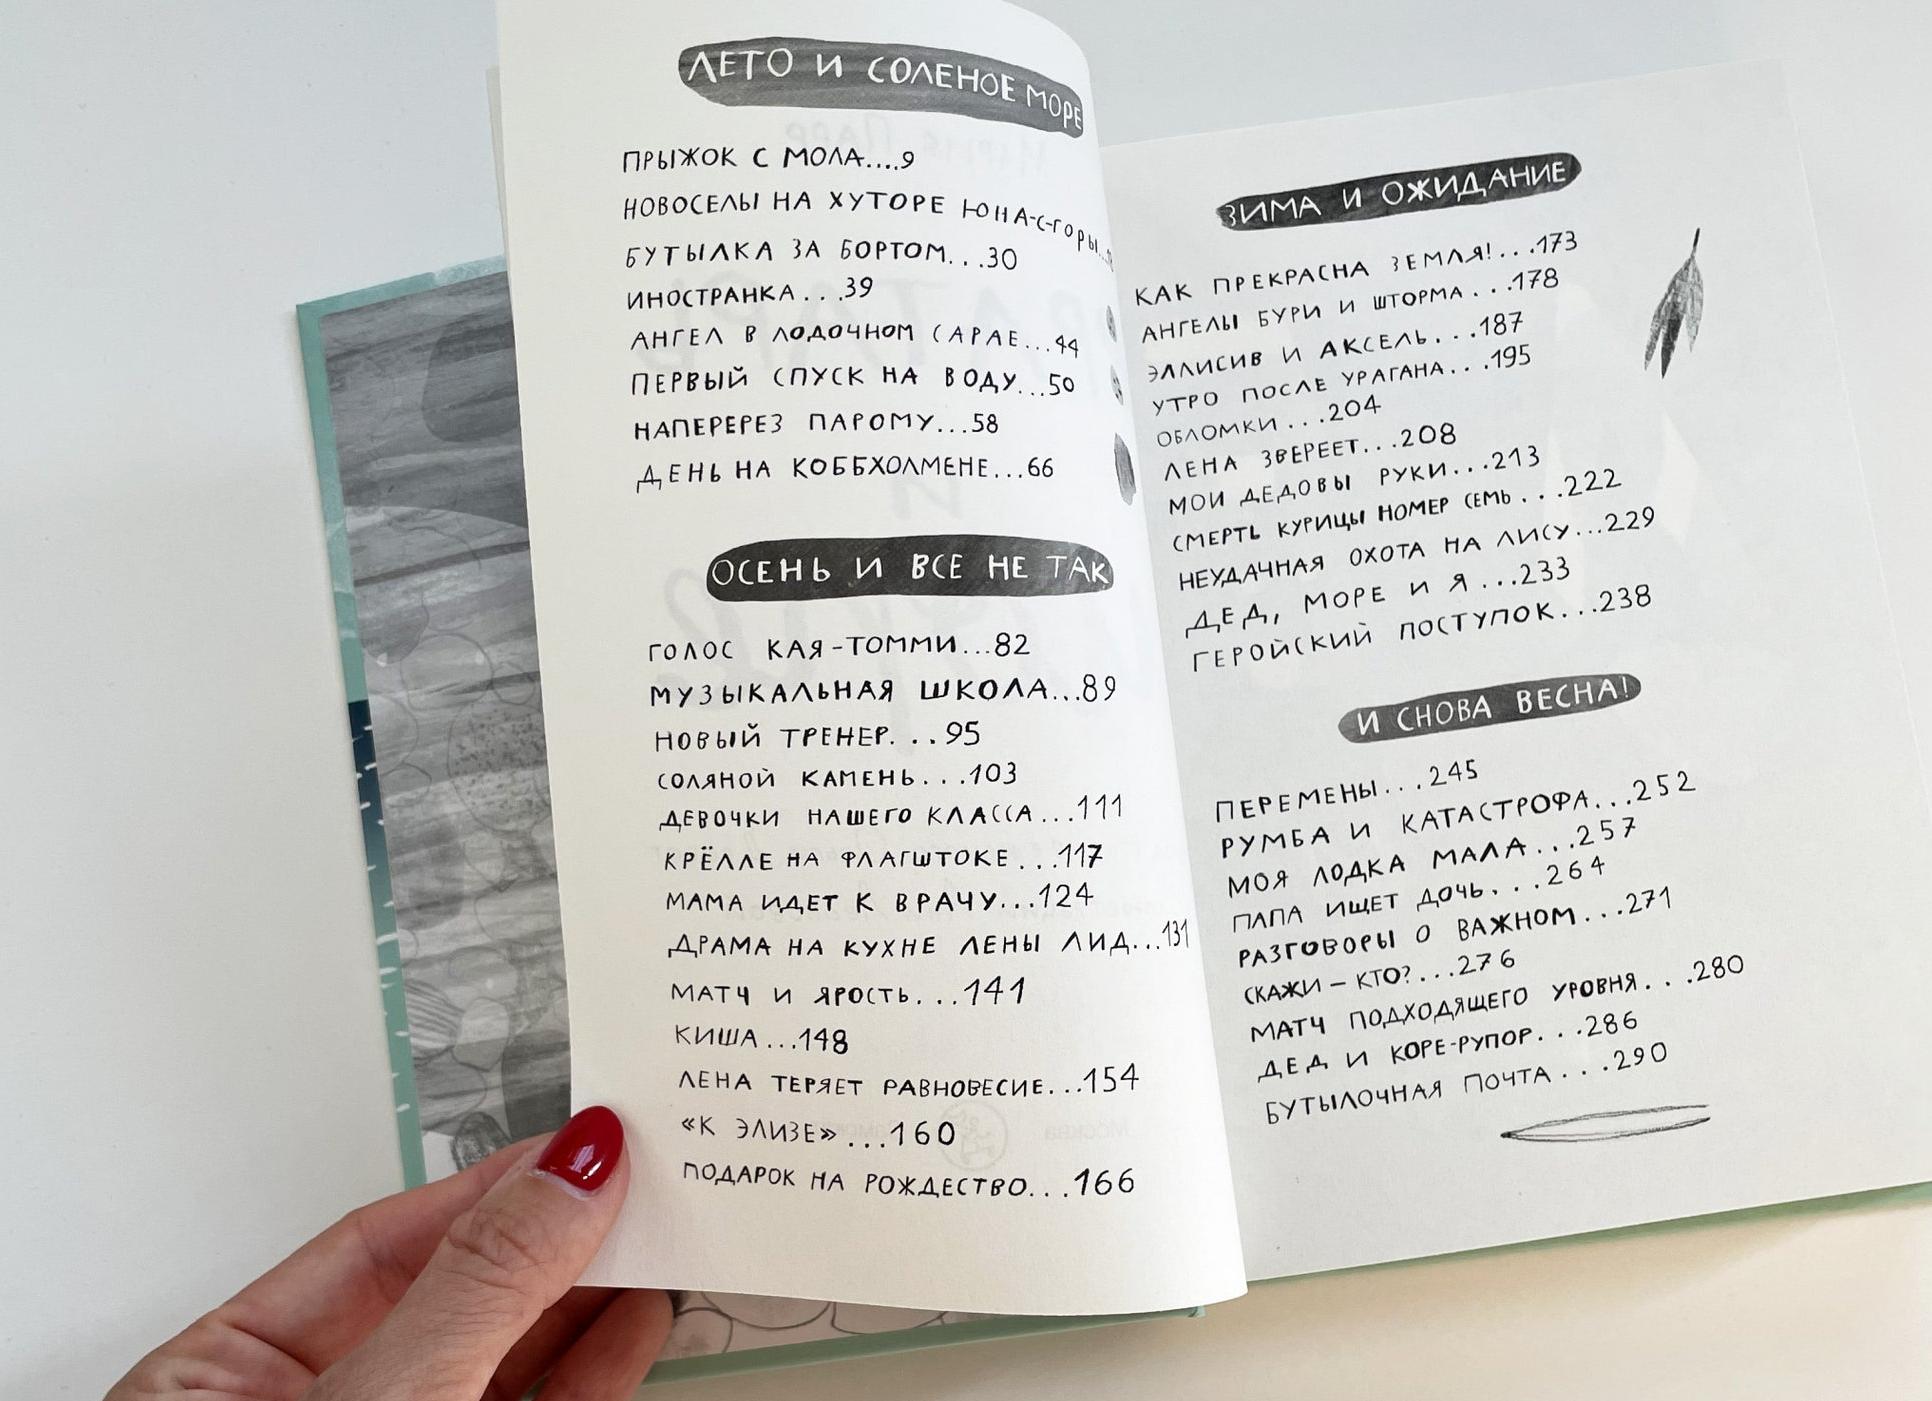 ЛЕТО И СОЛЕНОЕ МОРЕ
ПРЫЖОК С МОЛА....9
НОВОСЕЛЫ НА ХУТОРЕ ЮНА-С-ГОРЫ...
БУТЫЛКА ЗА БОРТОМ...30
ИНОСТРАНКА...39
АНГЕЛ В ЛОДОЧНОМ САРАЕ...44
ПЕРВЫЙ СПУСК НА ВОДУ...50
НАПЕРЕРЕЗ ПАРОМУ...58
ДЕНЬ НА КОББХОЛМЕНЕ...66
ОСЕНЬ И ВСЕ НЕ ТАК
ГОЛОС КАЯ-ТОММИ...82
МУЗЫКАЛЬНАЯ ШКОЛА...89
НОВЫЙ ТРЕНЕР...95
СОЛЯНОЙ КАМЕНЬ...103
ДЕВОЧКИ НАШЕГО КЛАССА...111
КРЁЛЛЕ НА ФЛАГШТОКЕ...117
МАМА ИДЕТ К ВРАЧУ...124
ДРАМА НА КУХНЕ ЛЕНЫ ЛИД...131
МАТЧ И ЯРОСТЬ...141
КИША...148
ЛЕНА ТЕРЯЕТ РАВНОВЕСИЕ...154
«К ЭЛИЗЕ»...160
ПОДАРОК НА РОЖДЕСТВО...166
ЗИМА И ОЖИДАНИЕ
КАК ПРЕКРАСНА ЗЕМЛЯ!...173
АНГЕЛЫ БУРИ И ШТОРМА...178
ЭЛЛИСИВ И АКСЕЛЬ...187
УТРО ПОСЛЕ УРАГАНА...195
ОБЛОМКИ...204
ЛЕНА ЗВЕРЕЕТ...208
МОИ ДЕДОВЫ РУКИ...213
СМЕРТЬ КУРИЦЫ НОМЕР СЕМЬ...222
НЕУДАЧНАЯ ОХОТА НА ЛИСУ...229
ДЕД, МОРЕ И Я...233
ГЕРОЙСКИЙ ПОСТУПОК...238
И СНОВА ВЕСНА!
ПЕРЕМЕНЫ...245
РУМБА И КАТАСТРОФА...252
МОЯ ЛОДКА МАЛА...257
ПАПА ИЩЕТ ДОЧЬ...264
РАЗГОВОРЫ О ВАЖНОМ...271
СКАЖИ – КТО?...276
МАТЧ ПОДХОДЯЩЕГО УРОВНЯ...280
ДЕД И КОРЕ-РУПОР...286
БУТЫЛОЧНАЯ ПОЧТА...290